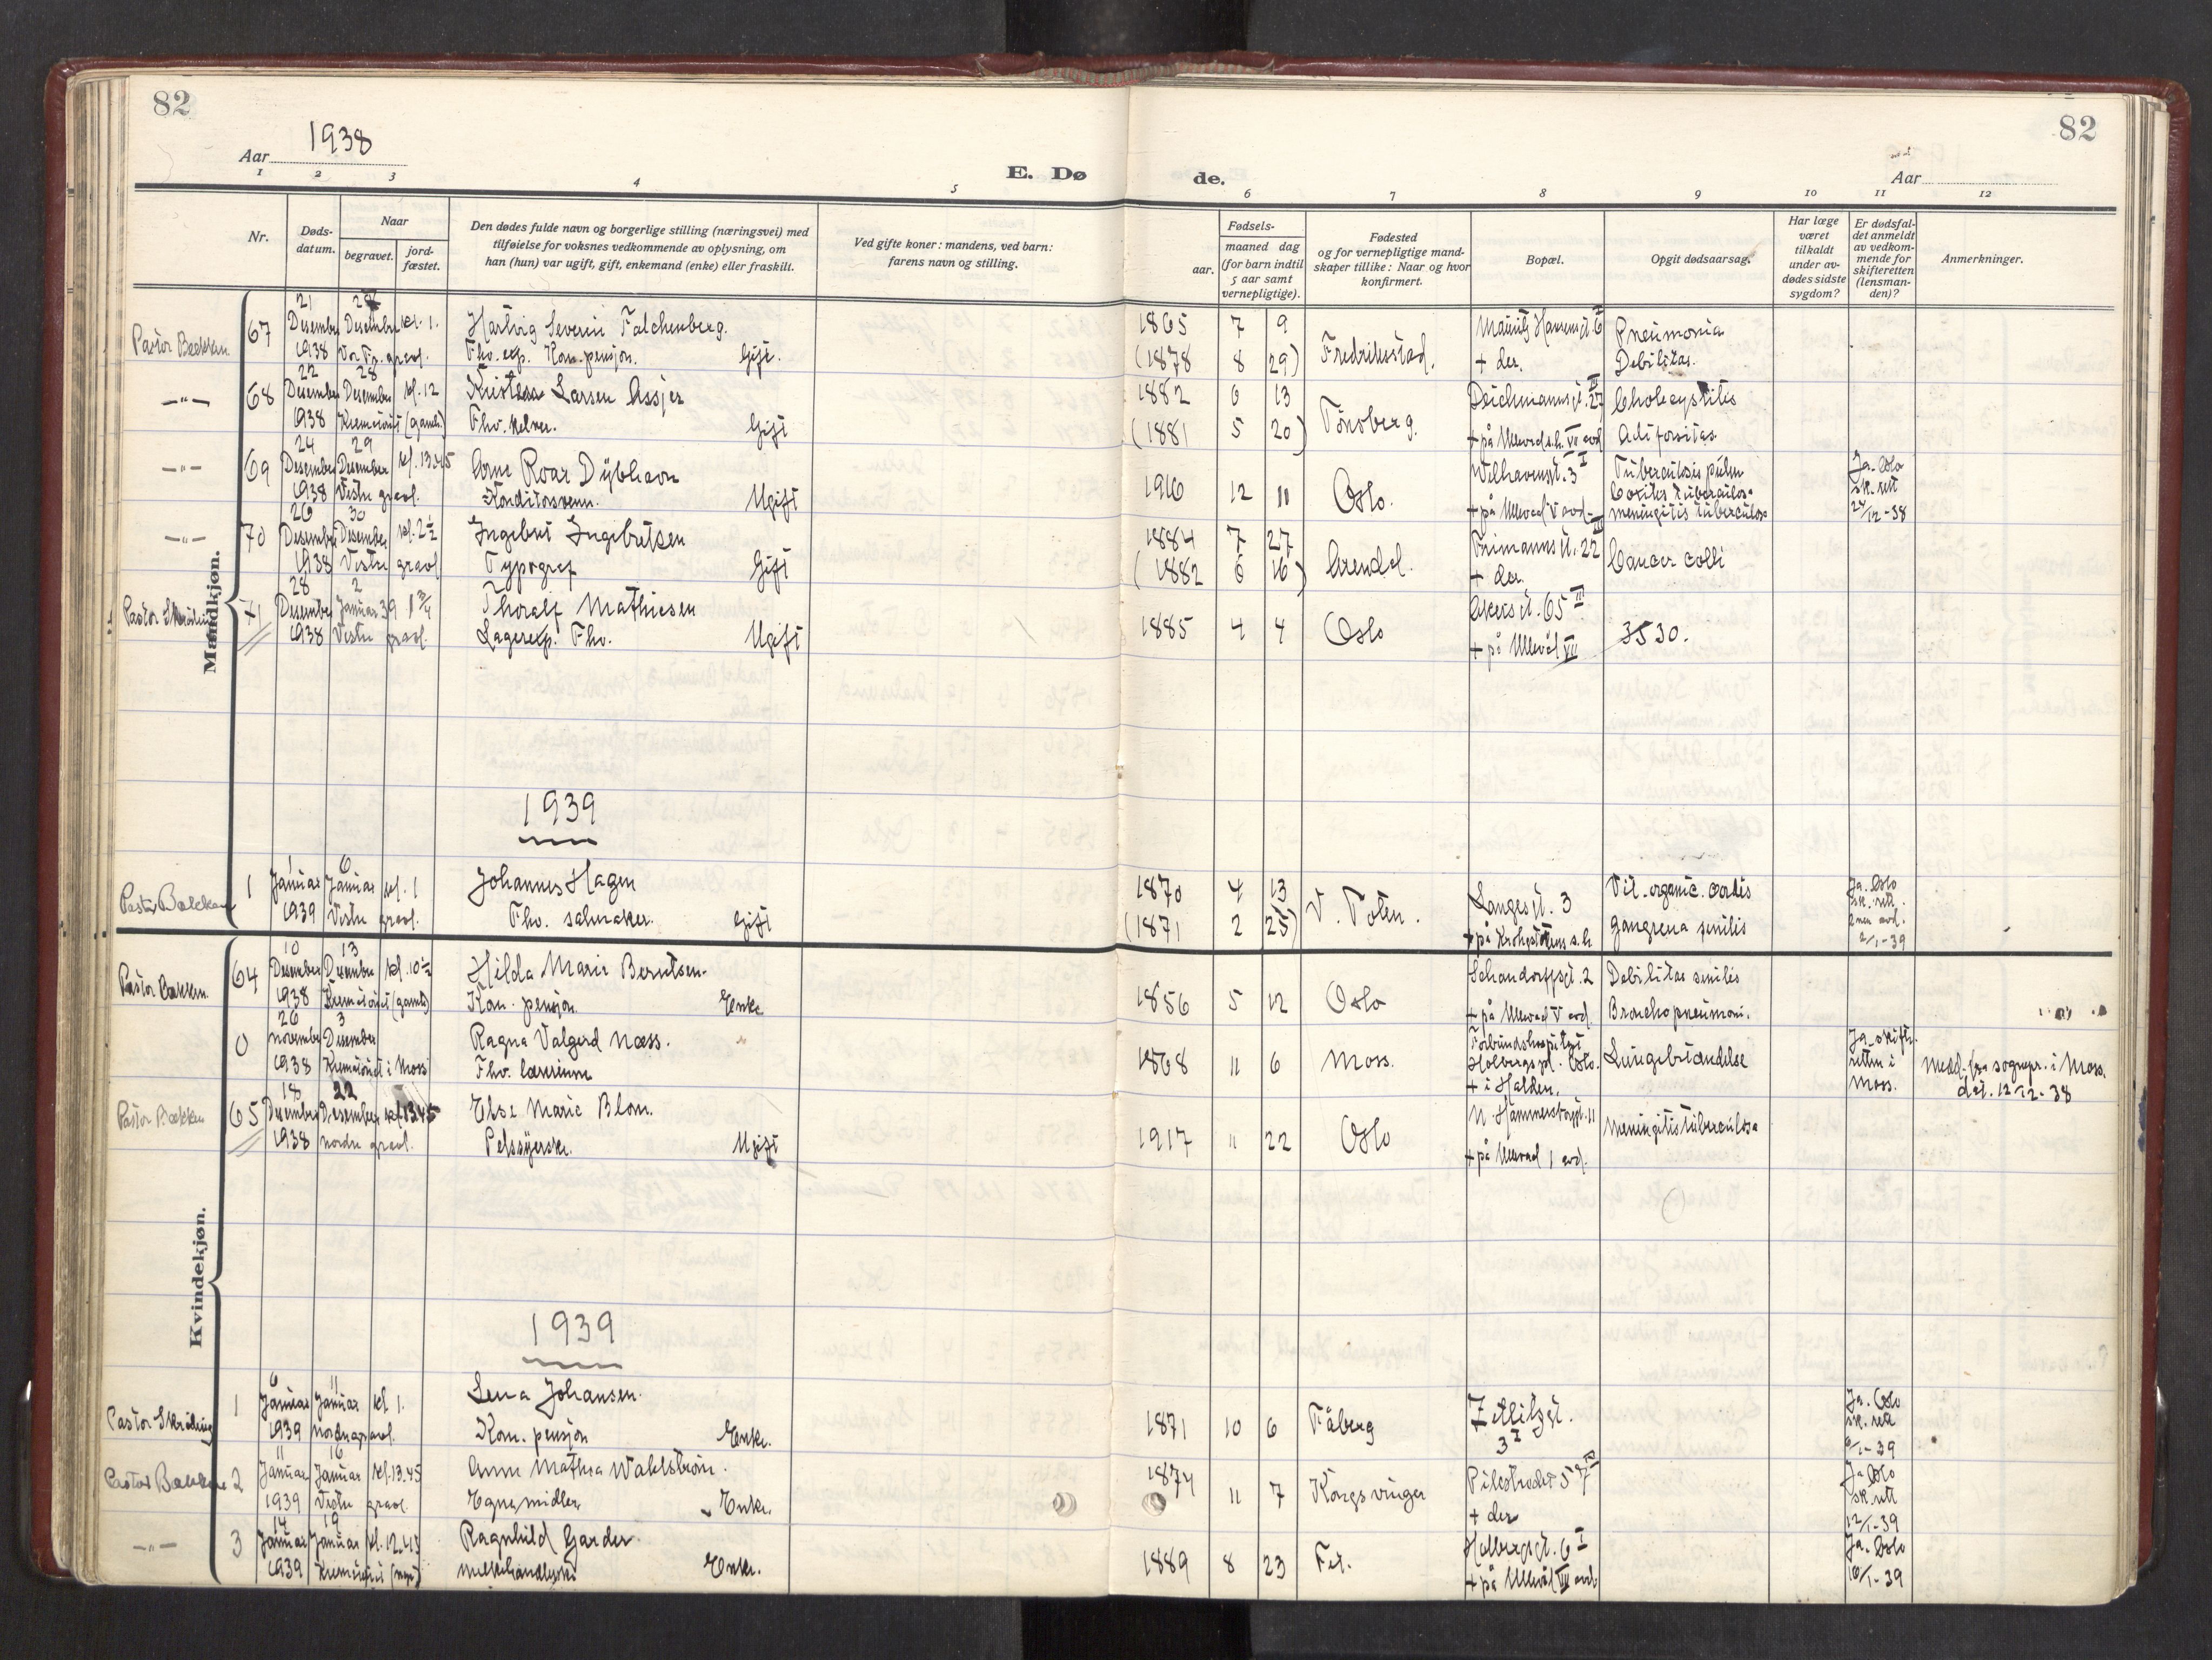 82
82
Aar 1938
E. Dø
de.
Aar
1 2 3 4 5 6 7 8 9 10 11 12
Nr.
Døds-
datum.
Naar
begravet.
jord-
fæstet.
Den dødes fulde navn og borgerlige stilling (næringsvei) med
tilføielse for voksnes vedkommende av oplysning, om
han (hun) var ugift, gift, enkemand (enke) eller fraskilt.
Ved gifte koner: mandens, ved barn:
farens navn og stilling.
Fødsels-
aar.
maaned dag
(for barn indtil
5 aar samt
vernepligtige).
Fødested
og for vernepligtige mand-
skaper tillike: Naar og hvor
konfirmert.
Bopæl.
Opgit dødsaarsag.
Har læge
været
tilkaldt
under av-
dødes sidste
sygdom?
Er dødsfal-
det anmeldt
av vedkom-
mende for
skifteretten
(lensman-
den)?
Anmerkninger.
Mandkjøn.
21 28
Pastor Bækken. 67 Desember Desember kl. 1. Hartvig Severin Falchenberg. 1865 7 9 Fredrikstad. Pneumonia
1938 Vor Fr. gravl. Fhv. exp. Kom. pensjon. Gift. (1878 8 29) + der. Debilitas.
22 28
—"— 68 Desember Desember kl. 12 Larsen Assjer 1882 6 13 Tönsberg. Deichmannsgt. 27
1938 Krematoriet (gamle) Fhv. kelner. Gift (1881 5 20) Adipositas
24 29
—"— 69 Desember Desember kl. 13.45 Arne Roar Dybhavn 1916 12 11 Oslo. Welhavensgt. 3 I Ja. Oslo
1938 Vestre gravl. Konditorsvenn. Ugift + på Ullevål V avd. meningitis tuberculosa sk. rett
24/12-38
26 30
—"— 70 Desember Desember kl. 2½ Ingebret Ingebretsen 1884 7 27 Arendal. Cancer colli
1938 Vestre gravl Typograf Gift (1882 6 16) + der.
28 2
Pastor Skråding 71 Desember Januar 39 1¾ Thoralf Mathiesen 1885 4 4 Oslo Akersgt. 65 III
1938 Vestre gravl. Lagerexp. Fhv. Ugift + på Ullevål VII 3530.
1939
1 6
Pastor Bækken 1 Januar Januar kl. 1 Johannes Hagen 1870 4 13 V. Toten. Langesgt. 3 Vit. organic. cordis Ja. Oslo
1939 Vestre gravl. Fhv. salmaker. Gift (1871 2 25) + på Krohgstøtens s.h. gangrena senilis sk. rett.
2nen avd.
2/1-39
Kvindekjøn.
10 13
Pastor Bækken. 64 Desember Desember kl. 10½ Hilda Marie Berntsen. 1856 5 12 Oslo Schandorffsgt. 2 Debilitas senilis
1938 Krematoriet (gamle) Kom. pensjon. Enke + på Ullevål V avd. Bronchopneumoni.
26 3
0 november Desember Ragna Valgerd Næss. 1868 11 6 Moss. Holbergspl. Oslo. Lungebetændelse Ja. skifte-
1938 Krematoriet i Moss Fhv. lærerinne + i Halden. retten i
Moss.
Medd. fra sognepr. i Moss.
dat. 12-12-38
18 22
Pastor Bækken 65 Desember Desember kl. 13.45 Else Marie Blom. 1917 11 22 Oslo N. Hammersborggt. 11 Meningitis tuberculosa
1938 nordre gravl. Pelssyerske. Ugift + på Ullevål 1 avd.
1939
6 11
Pastor Skråding 1 Januar Januar kl 1. Lena Johansen. 1871 10 6 Fåberg Zetlitzgt. Ja. Oslo
1939 Nordre gravl. Kom. pensjon Enke. 3 I sk. rett
9/1-39
11 16
Pastor Bækken 2 Januar Januar kl. 13.45 Anne Mathea Wahlstrøm. 1874 11 7 Kongsvinger Pilestredet 57 IV Ja Oslo
1939 Vestre gravl. Egne midler. Enke. + der sk. rett
12/1-39
14 19
—"— 3 Januar Januar kl. 12.45 Ragnhild Garder. 1889 8 23 Fet. Holbergsgt. 6 I Ja. Oslo
1939 Krematoriet (nye) Melkehandlerske Enke. + på Ullevål VIII avd. 16/1-39